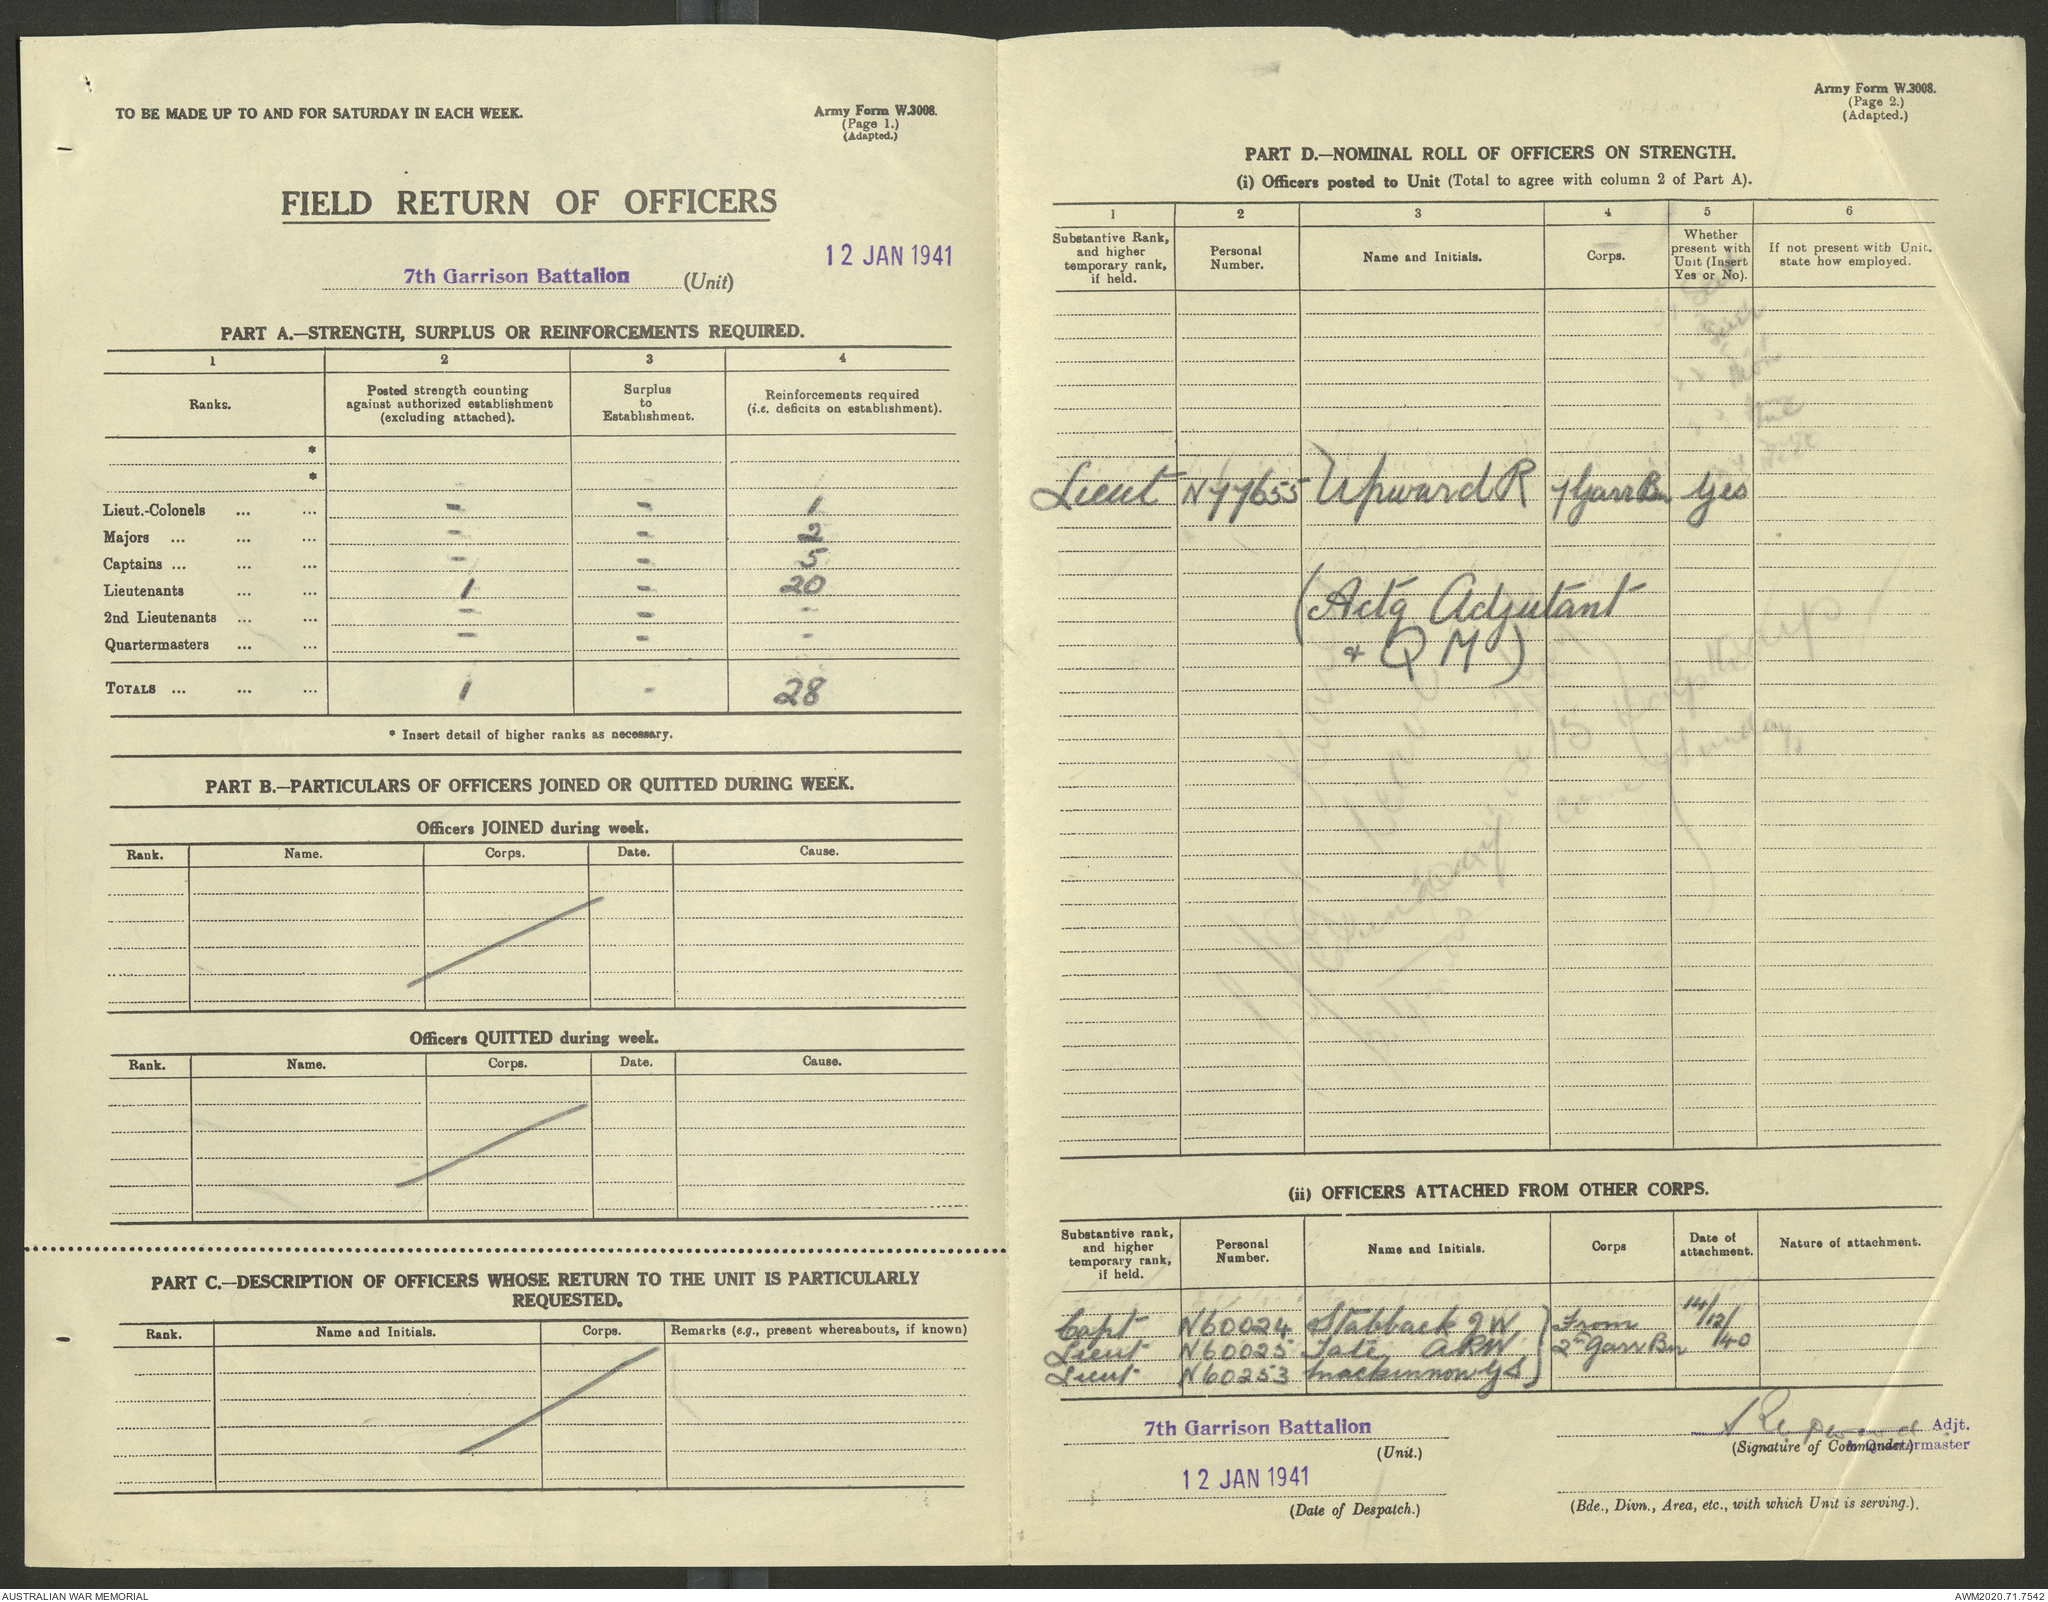 TO BE MADE UP TO AND FOR SATURDAY IN EACH WEEK.
Army Form W.3008.
(Page 1.)
(Adapted.)
FIELD RETURN OF OFFICERS
12 JAN 1941
7th Garrison Battalion (Unit)
PART A.—STRENGTH, SURPLUS OR REINFORCEMENTS REQUIRED.
1 2 3 4
Ranks. Posted strength counting against authorized establishment (excluding attached). Surplus to Establishment. Reinforcements required (i.e. deficits on establishment).
*
*
Lieut.-Colonels ... ... - - 1
Majors ... ... ... - - 2
Captains ... ... ... - - 5
Lieutenants ... ... 1 - 20
2nd Lieutenants ... ... - - -
Quartermasters ... ... - - -
TOTALS ... ... ... 1 - 28
* Insert detail of higher ranks as necessary.
PART B.—PARTICULARS OF OFFICERS JOINED OR QUITTED DURING WEEK.
Officers JOINED during week.
Rank. Name. Corps. Date. Cause.
Officers QUITTED during week.
Rank. Name. Corps. Date. Cause.
PART C.—DESCRIPTION OF OFFICERS WHOSE RETURN TO THE UNIT IS PARTICULARLY
REQUESTED.
Rank. Name and Initials. Corps. Remarks (e.g., present whereabouts, if known)
Army Form W.3008.
(Page 2.)
(Adapted.)
PART D.—NOMINAL ROLL OF OFFICERS ON STRENGTH.
(i) Officers posted to Unit (Total to agree with column 2 of Part A).
1 2 3 4 5 6
Substantive Rank, and higher temporary rank, if held. Personal Number. Name and Initials. Corps. Whether present with Unit (Insert Yes or No). If not present with Unit, state how employed.
Lieut N77655 Upward R 7 Garr Bn Yes
(Actg Adjutant
+ Q M)
(ii) OFFICERS ATTACHED FROM OTHER CORPS.
Substantive rank, and higher temporary rank, if held. Personal Number. Name and Initials. Corps Date of attachment. Nature of attachment.
Capt N60024 Stabback J W } From 14/12/40
Lieut N60025 Tate A R W } 2nd Garr Bn
Lieut N60253 Mackinnon G S }
7th Garrison Battalion
(Unit.)
R Upward Adjt.
(Signature of Commander.) & Quartermaster
12 JAN 1941
(Date of Despatch.)
(Bde., Divn., Area, etc., with which Unit is serving.).
AUSTRALIAN WAR MEMORIAL
AWM2020.71.7542